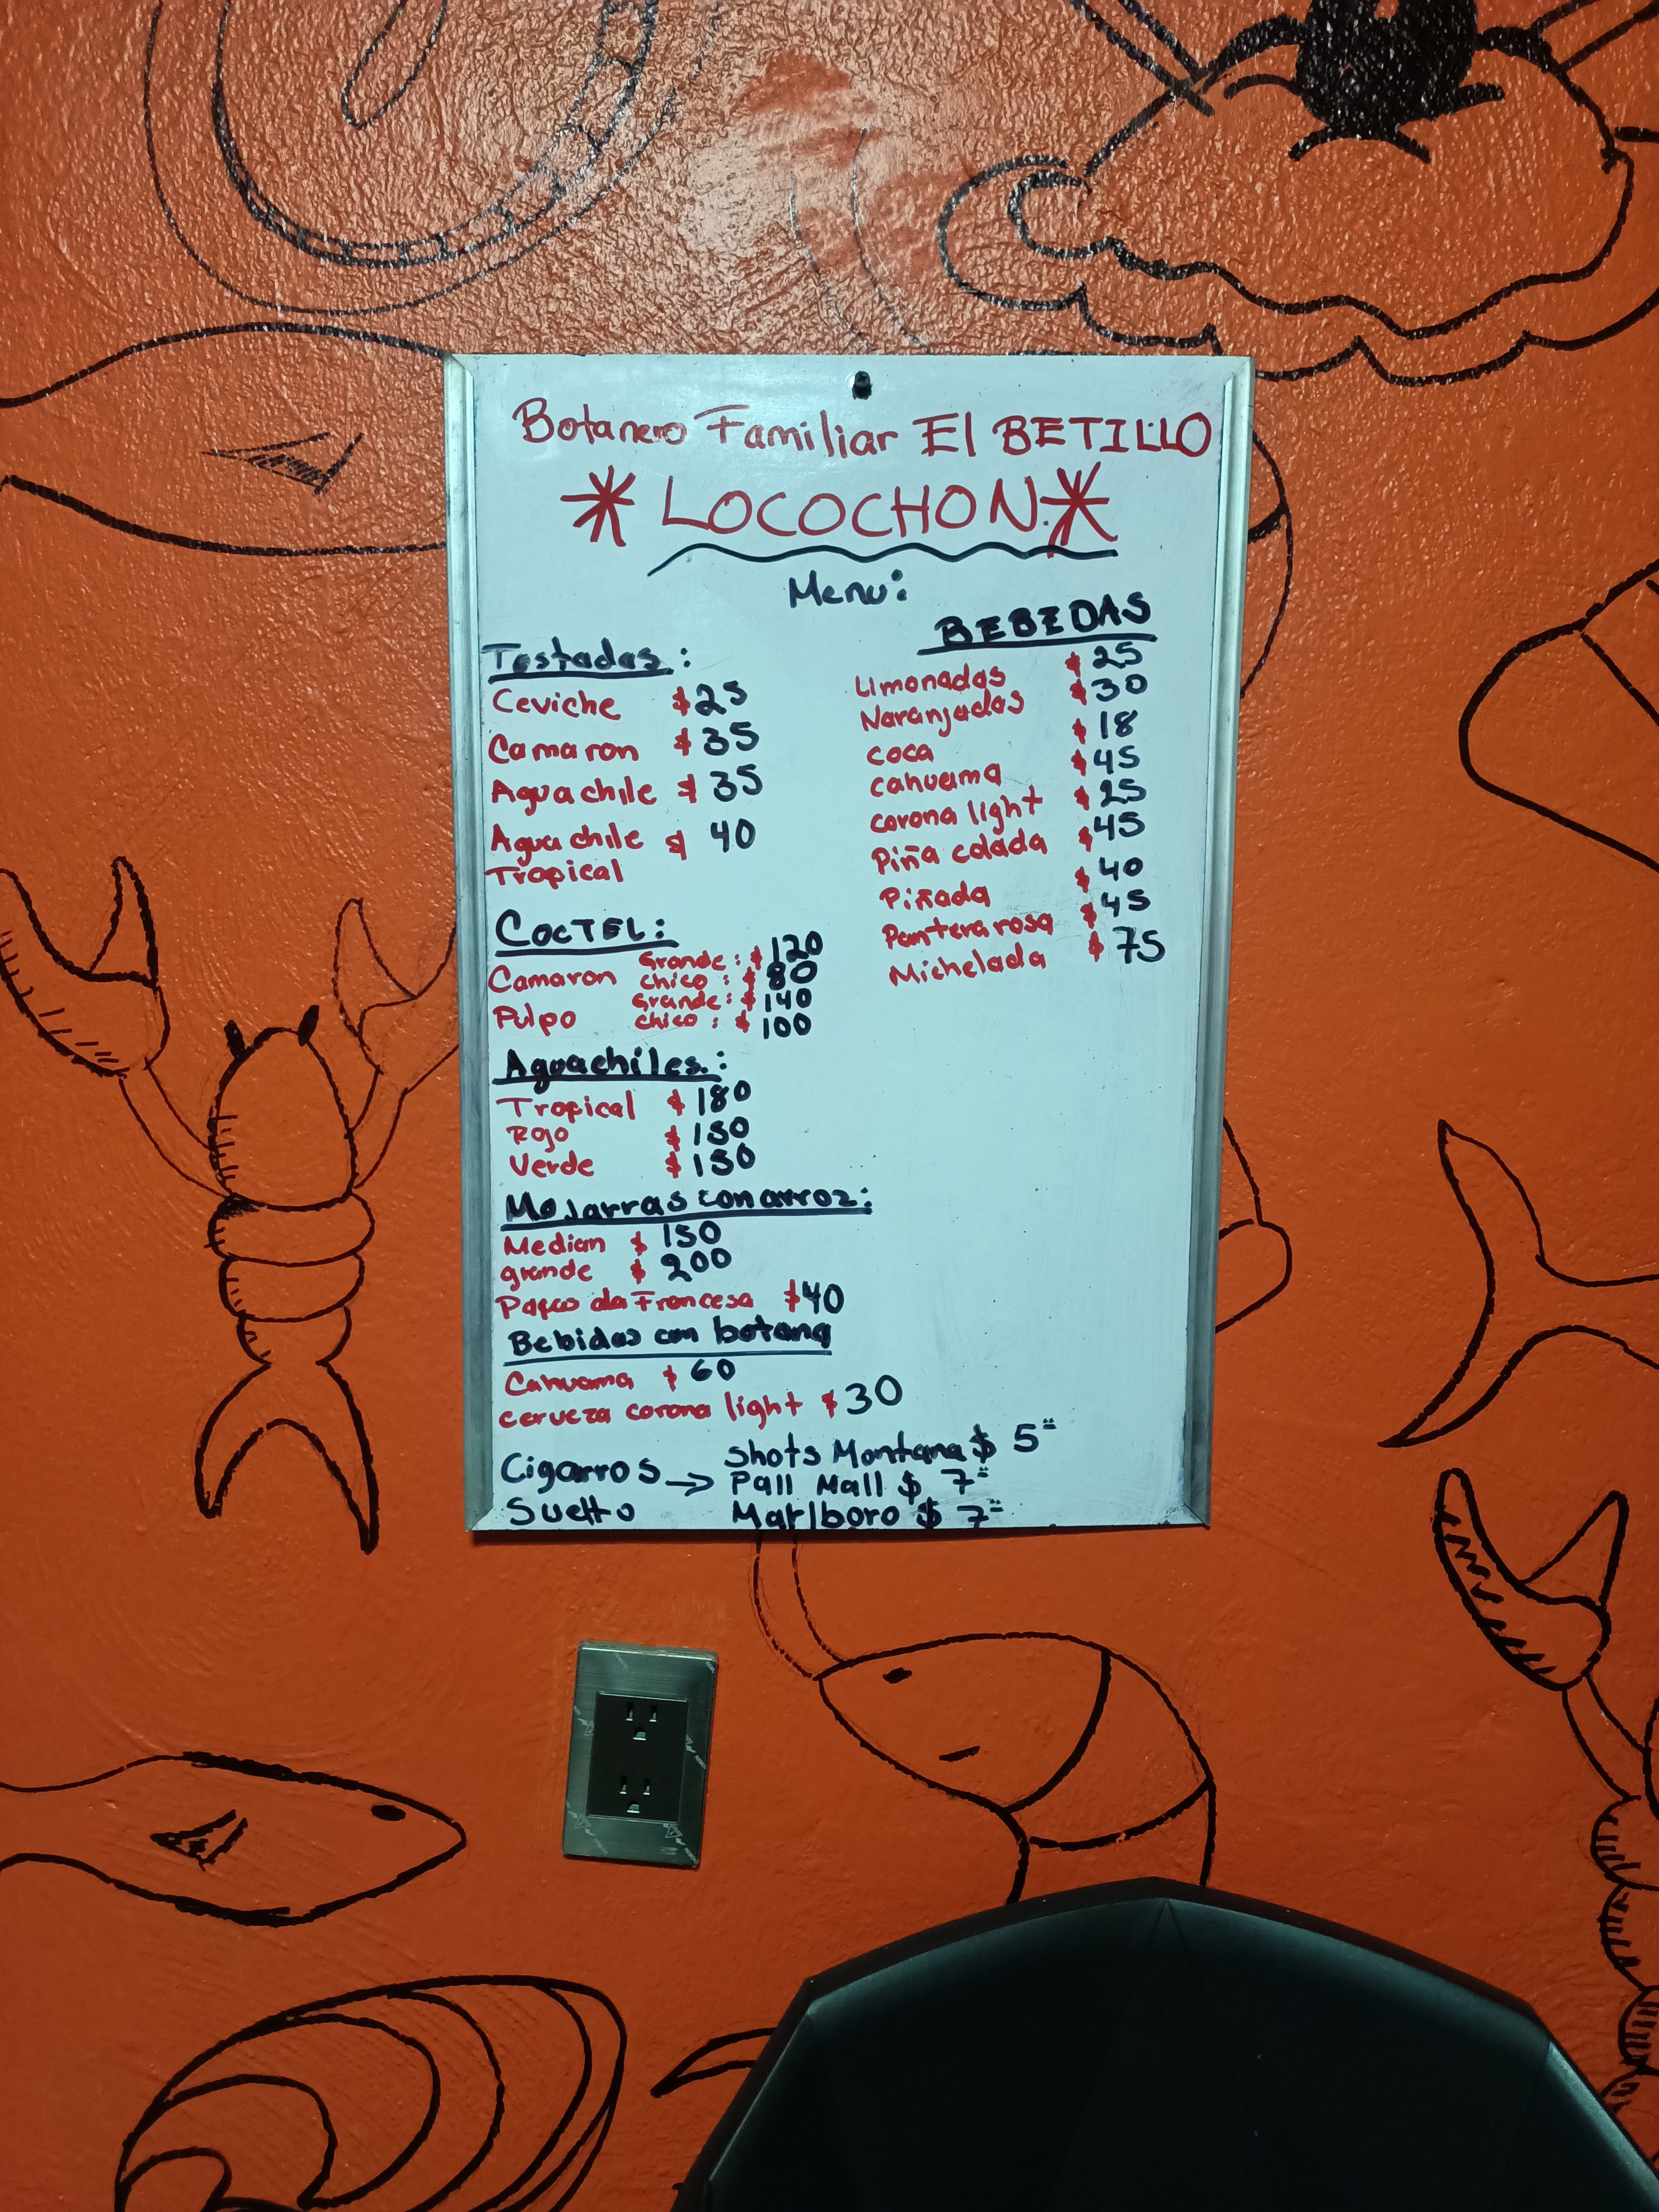 Botanero Familiar El BETILLO
* LOCOCHON *
Menu:
Tostadas:
Ceviche $25
Camaron $35
Aguachile $35
Aguachile $40
Tropical
COCTEL:
Camaron Grande: $120
chico: $80
Pulpo Grande: $140
chico: $100
Aguachiles:
Tropical $180
Rojo $150
Verde $150
Mojarras con arroz:
Median $150
grande $200
a la Francesa $40
Bebidas con botana
Cahuama $60
cerveza corona light $30
BEBEDAS
Limonadas $25
Naranjadas $30
coca $18
cahuama $45
corona light $25
Piña colada $45
Piñada $40
Pantera rosa $45
Michelada $75
Cigarros → Shots Montana $5
Suelto Pall Mall $7
Marlboro $7